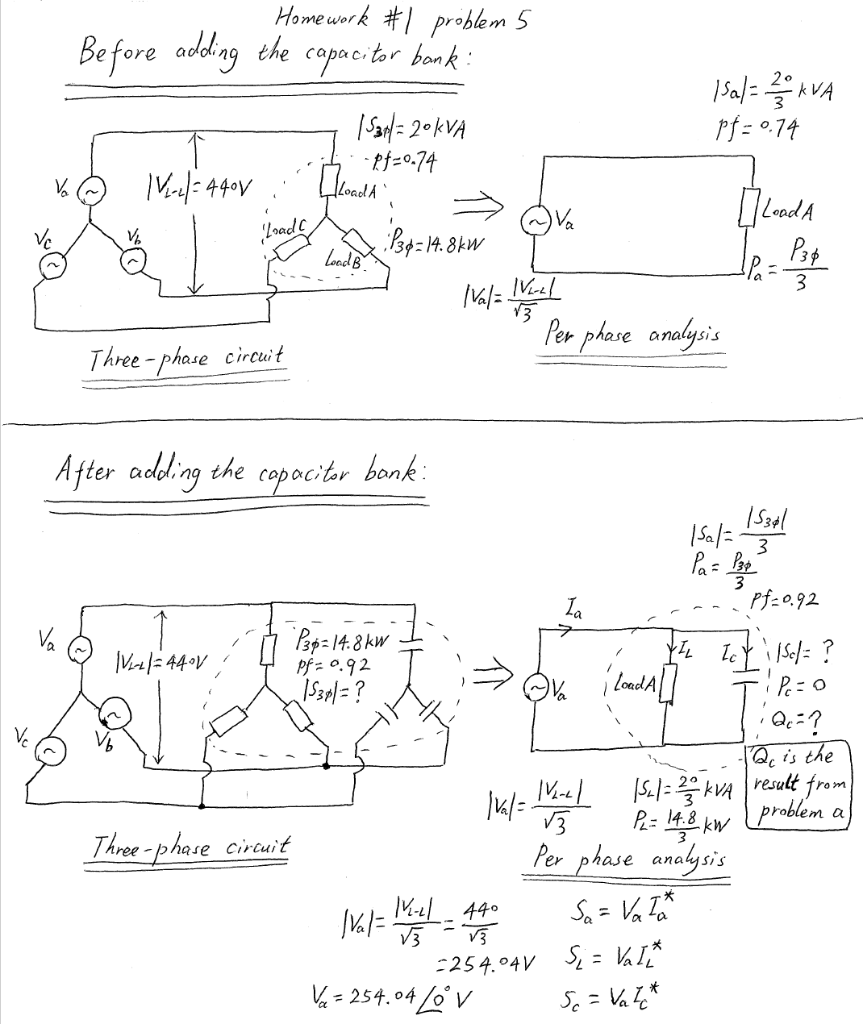 Homework #1 problem 5
Before adding the capacitor bank:
|Sa| = 20/3 kVA
pf = 0.74
|S3φ| = 20 kVA
pf = 0.74
Va
|VL-L| = 440V
Load A
Vc
Vb
Load C
Load B
P3φ = 14.8 kW
Va
Load A
Pa = P3φ/3
|Va| = |VL-L|/√3
Per phase analysis
Three-phase circuit
After adding the capacitor bank:
|Sa| = |S3φ|/3
Pa = P3φ/3
pf = 0.92
Ia
Va
|VL-L| = 440V
P3φ = 14.8 kW
pf = 0.92
|S3φ| = ?
Vc
Vb
Va
Load A
IL
Ic
|Sc| = ?
Pc = 0
Qc = ?
Qc is the
result from
problem a
|Va| = |VL-L|/√3
|SL| = 20/3 kVA
PL = 14.8/3 kW
Three-phase circuit
Per phase analysis
|Va| = |VL-L|/√3 = 440/√3
= 254.04V
Va = 254.04 ∠0° V
Sa = Va Ia*
SL = Va IL*
Sc = Va Ic*